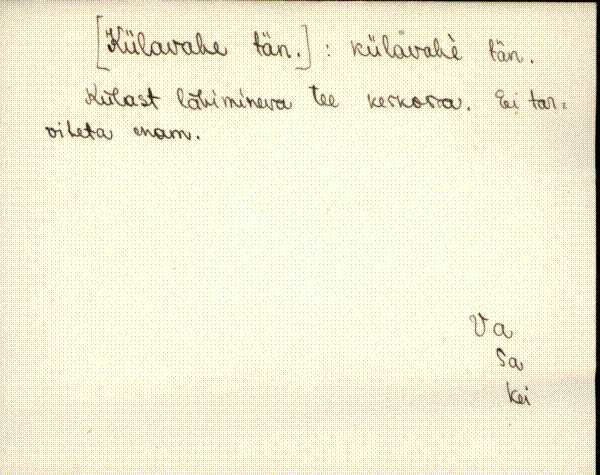 [Külavahe tän.] : külàvahè tän.
Külast läbimineva tee keskosa. Ei tar-
viteta enam.
Va
Sa
Kei